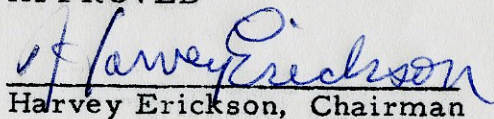 APPROVED
Harvey Erickson
Harvey Erickson, Chairman